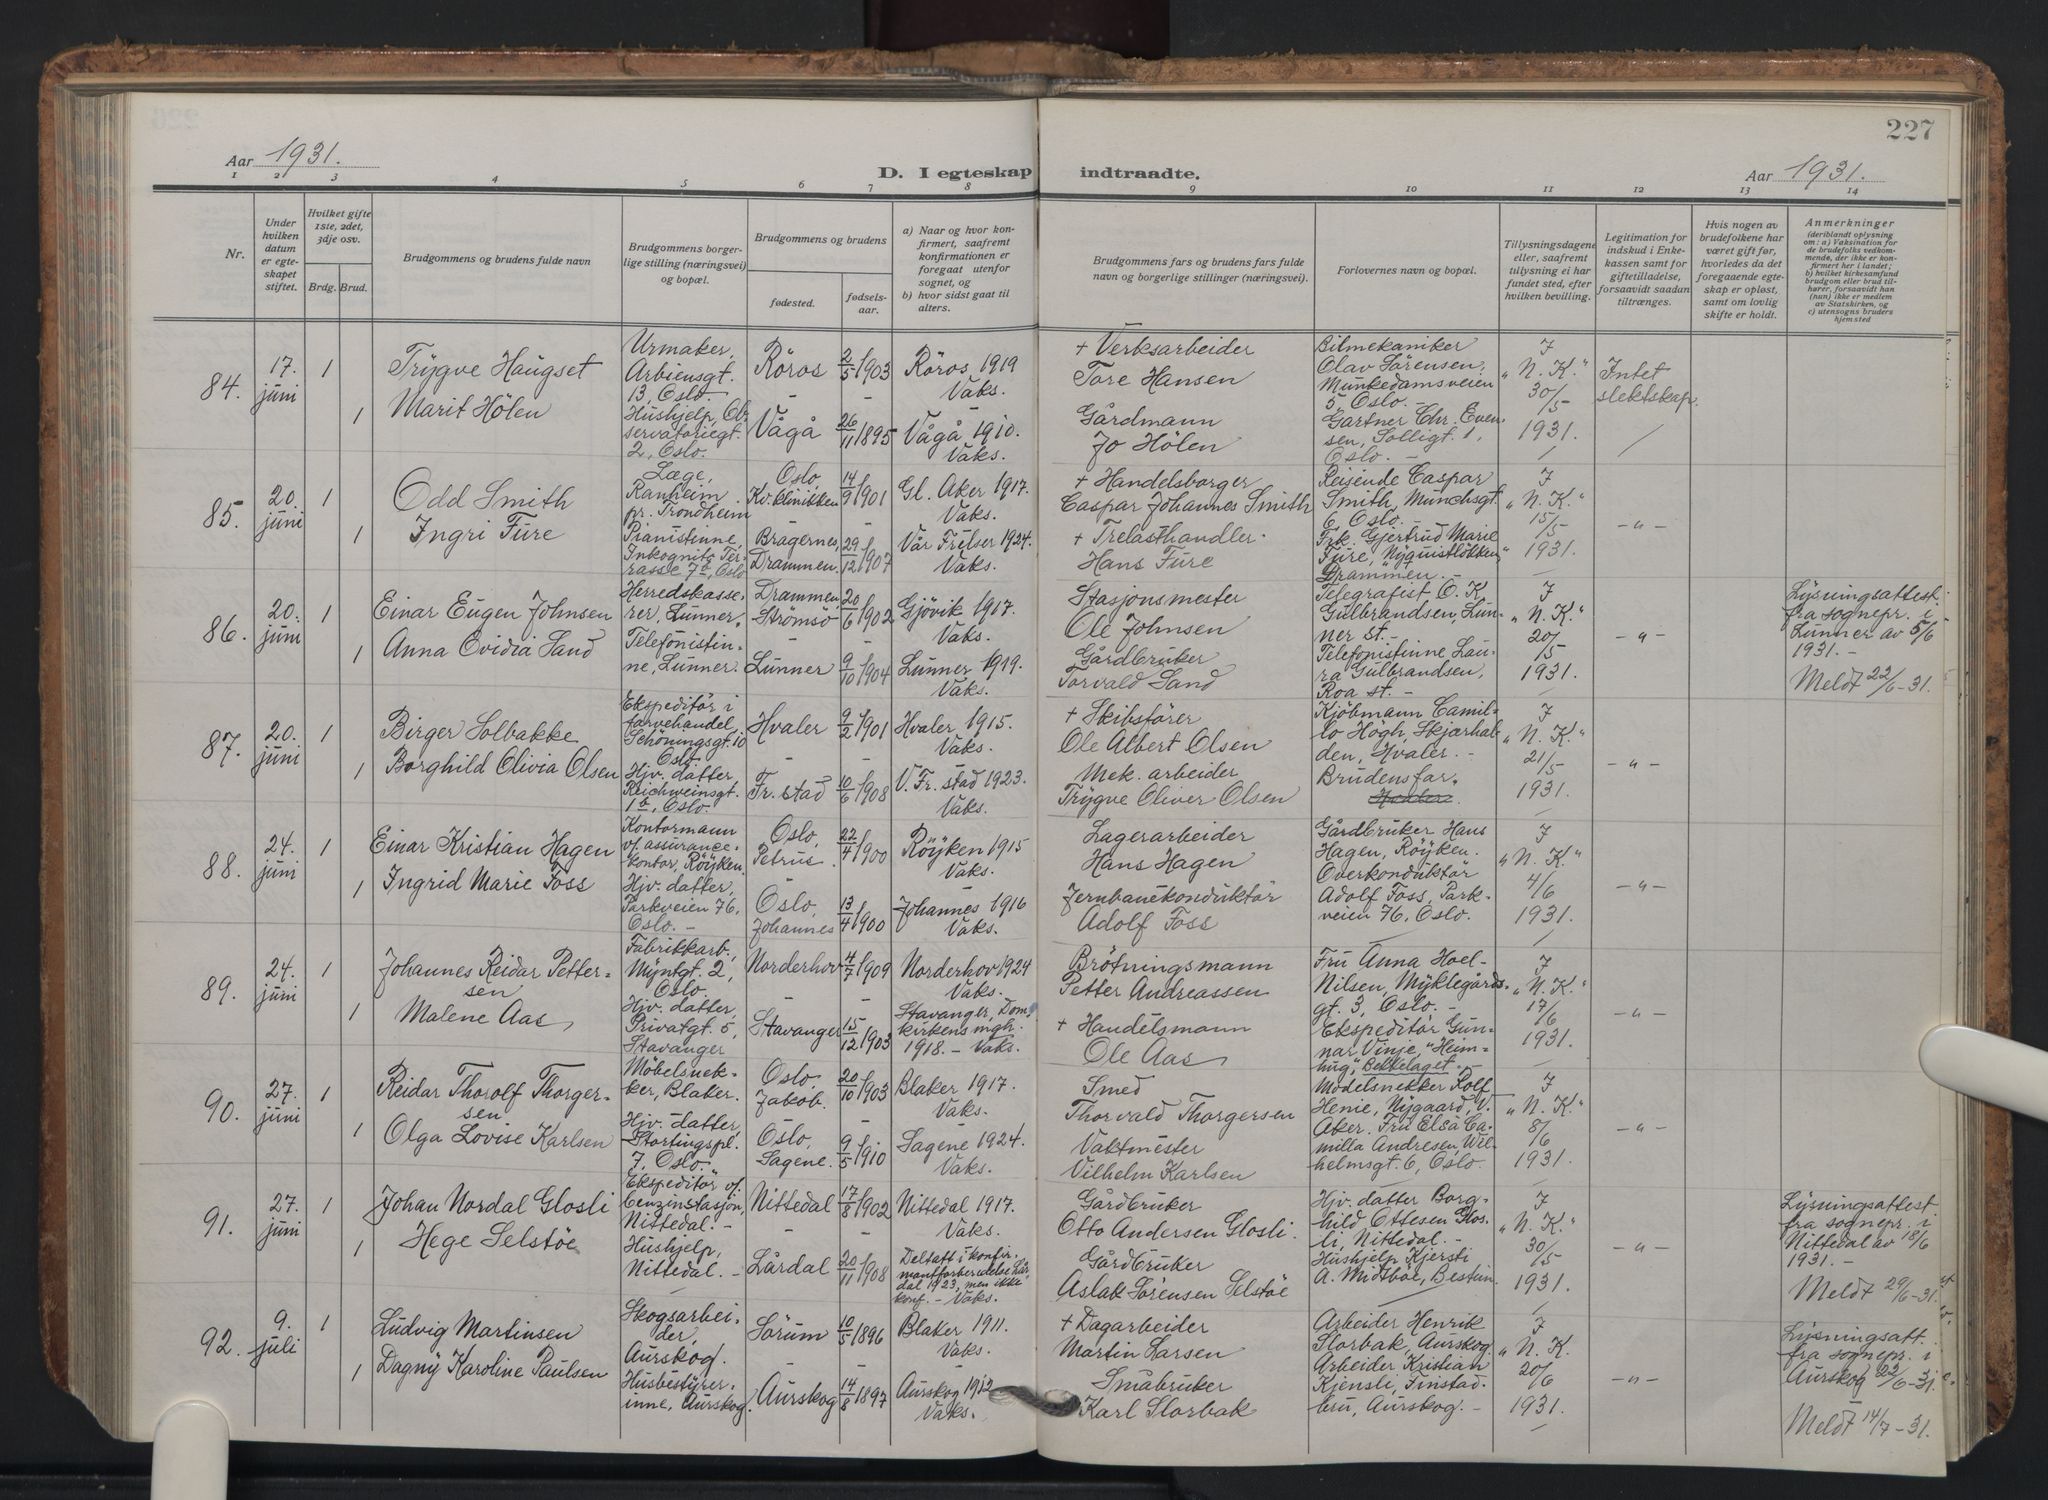 227
Aar 1931.
D. I egteskap indtraadte.
Aar 1931.
1 2 3 4 5 6 7 8 9 10 11 12 13 14
Nr.
Under hvilken datum er egteskapet stiftet.
Hvilket gifte 1ste, 2det, 3dje osv.
Brdg. Brud.
Brudgommens og brudens fulde navn
Brudgommens borgerlige stilling (næringsvei) og bopæl.
Brudgommens og brudens
fødested. fødselsaar.
a) Naar og hvor konfirmert, saafremt konfirmationen er foregaat utenfor sognet, og
b) hvor sidst gaat til alters.
Brudgommens fars og brudens fars fulde navn og borgerlige stillinger (næringsvei).
Forlovernes navn og bopæl.
Tillysningsdagene eller, saafremt tillysning ei har fundet sted, efter hvilken bevilling.
Legitimation for indskud i Enkekassen samt for giftetilladelse, forsaavidt saadan tiltrænges.
Hvis nogen av brudefolkene har været gift før, hvorledes da det foregaaende egteskap er opløst, samt om lovlig skifte er holdt.
Anmerkninger
(deriblandt oplysning om: a) Vaksination for de brudefolks vedkommende, der ikke er konfirmert her i landet;
b) hvilket kirkesamfund brudgom eller brud tilhører, forsaavidt han (hun) ikke er medlem av Statskirken, og
c) utensogns bruders hjemsted
84. 17. juni 1
Trygve Haugset
Urmaker, Arbiensgt. 13, Oslo.
Röros 2/5 1903
Röros 1919 Vaks.
+ Verksarbeider
Tore Hansen
Bilmekaniker Olav Sørensen, Munkedamsveien 5, Oslo. -
I „N. K.“ 30/5 1931.
Intet slektskap.
1 Marit Hölen
Hushjelp, Observatoriegt. 2, Oslo.
Vågå 26/11 1895
Vågå 1910. Vaks.
Gårdmann
Jo Hölen
Gartner Chr. Evensen, Solligt. 1, Oslo. -
85. 20. juni 1
Odd Smith
Læge, Ranheim pr. Trondheim
Oslo, Kv. klinikken 14/9 1901
Gl. Aker 1917. Vaks.
+ Handelsborger
Caspar Johannes Smith
Reisende Caspar Smith, Munchsgt. 6, Oslo. -
I „N. K.“ 15/5 1931.
- „ -
1 Ingri Fure
Pianistinne, Inkognito Terrasse 7b, Oslo
Bragernes, Drammen. 29/12 1907
Vår Frelser 1924. Vaks.
+ Trelasthandler.
Hans Fure
Frk. Gjertrud Marie Fure, „Nyquistlökken“ Drammen. -
86. 20. juni 1
Einar Eugen Johnsen
Herredskasserer, Lunner.
Drammen, Strömsö 20/6 1902
Gjövik 1917. Vaks.
Stasjonsmester
Ole Johnsen
Telegrafist O. K. Gulbrandsen, Lunner st. -
I „N. K.“ 20/5 1931.
- „ -
Lysningsattest fra sognepr. i Lunner av 5/6 1931. -
Meldt 22/6 - 31.
1 Anna Ovidia Sand
Telefonistinne, Lunner.
Lunner 9/10 1904
Lunner 1919. Vaks.
Gårdbruker
Torvald Sand
Telefonistinne Laura Gulbrandsen, Roa st. -
87. 20. juni 1
Birger Solbakke
Ekspeditör i farvehandel, Schöningsgt. 10 Oslo.
Hvaler 9/2 1901
Hvaler 1915. Vaks.
+ Skibsförer
Ole Albert Olsen
Kjöbmann Camillo Högh, Skjærhalden, Hvaler. -
I „N. K.“ 21/5 1931.
- „ -
1 Borghild Olivia Olsen
Hjv. datter, Reichweinsgt. 1b, Oslo.
Fr. stad 10/6 1908
V. Fr. stad 1923. Vaks.
Mek. arbeider
Trygve Oliver Olsen
Brudens far.
88. 24. juni 1
Einar Kristian Hagen
Kontormann v/. assurancekontor, Röyken.
Oslo, Petrus. 22/4 1900
Röyken 1915 Vaks.
Lagerarbeider
Hans Hagen
Gårdbruker Hans Hagen, Röyken.
I „N. K.“ 4/6 1931.
- „ -
1 Ingrid Marie Foss
Hjv. datter, Parkveien 76, Oslo. -
Oslo, Johannes 13/4 1900
Johannes 1916 Vaks.
Jernbanekonduktör
Adolf Foss
Overkonduktör Adolf Foss, Parkveien 76, Oslo.
89. 24. juni 1
Johannes Reidar Pettersen
Fabrikkarb., Myntgt. 2, Oslo.
Norderhov 4/7 1909
Norderhov 1924 Vaks.
Brötningsmann
Petter Andreassen
Fru Anna Hoel-Nilsen, Myklegårdsgt. 3, Oslo. -
I „N. K.“ 17/6 1931.
- „ -
1 Malene Aas
Hjv. datter, Privatgt. 5, Stavanger
Stavanger 15/12 1903
Stavanger, Domkirkens mgh. 1918. - Vaks.
+ Handelsmann
Ole Aas
Ekspeditör Gunnar Vinje, „Heimhug,“ Bekkelaget. -
90. 27. juni 1
Reidar Thorolf Thorgersen
Möbelsnekker, Blaker.
Oslo, Jakob. 20/10 1903
Blaker 1917. Vaks.
Smed
Thorvald Thorgersen
Modelsnekker Rolf Henie, Nygaard, V. Aker.
I „N. K.“ 8/6 1931.
- „ -
1 Olga Lovise Karlsen
Hjv. datter, Stortingspl. 7, Oslo.
Oslo, Sagene. 9/5 1910
Sagene 1924. Vaks.
Vaktmester
Vilhelm Karlsen
Fru Elsa Camilla Andresen, Wilhelmsgt. 6, Oslo.
91. 27. juni 1
Johan Nordal Glosli
Ekspeditör v/. benzinstasjon, Nittedal. -
Nittedal 17/8 1902
Nittedal 1917. Vaks.
Gårdbruker
Otto Andersen Glosli.
Hjv. datter Borghild Ottesen Glosli, Nittedal. -
I „N. K.“ 30/5 1931.
- „ -
Lysningsattest fra sognepr. i Nittedal av 18/6 1931. -
Meldt 29/6 - 31.
1 Hege Selstöe
Hushjelp, Nittedal. -
Lårdal 20/11 1908
Deltatt i konfirmantforberedelse Lårdal 1923, men ikke konf. - Vaks.
Gårdbruker
Aslak Sörensen Selstöe
Hushjelp Kjersti A. Midtböe, Bestun.
92. 9. juli 1
Ludvig Martinsen
Skogsarbeider, Aurskog.
Sörum 10/5 1896
Blaker 1911. Vaks.
+ Dagarbeider
Martin Larsen
Arbeider Henrik Slorbak, Aurskog.
I „N. K. 20/6 1931.
- „ -
Lysningsatt. fra sognepr. i Aurskog 22/6 - 31.
Meldt 14/7 - 31.
1 Dagny Karoline Paulsen
Husbestyrerinne, Aurskog.
Aurskog 14/8 1897
Aurskog 1912 Vaks.
Småbruker
Karl Slorbak
Arbeider Kristian Kjensli, Finstadbru, Aurskog. -